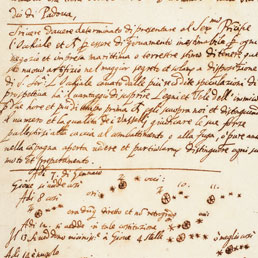 dio di Padova,
Scrivere havere determinato di presentare al Ser.mo Principe
l'Occhiale et p essere di giovamento inestimabile p ogni
negozio et impresa marittima o terrestre stimo di tenere
to nuovo artifizio nel maggior segreto et solam disposizione
L'Occhiale cavato dalle più recondite speculazioni di
prospettiva ha il vantaggio di scoprire Legni et Vele dell'inimico
p due hore et più di tempo prima scuopra noi et distinguendo
il numero et la qualità de i Vasselli giudicare le sue forze
pallestirsi alla caccia al combattimento o alla fuga, o pure anco
nella capagna aperta vedere et particolarm distinguere ogni suo
moto et preparamento.
Adi 7. di Gennaio
Giove si vede così
Adi 8 così
era diretto et no retrogrado
Adi 12 si vedde in tale costituzione
Il 13 a Giove 4 stelle